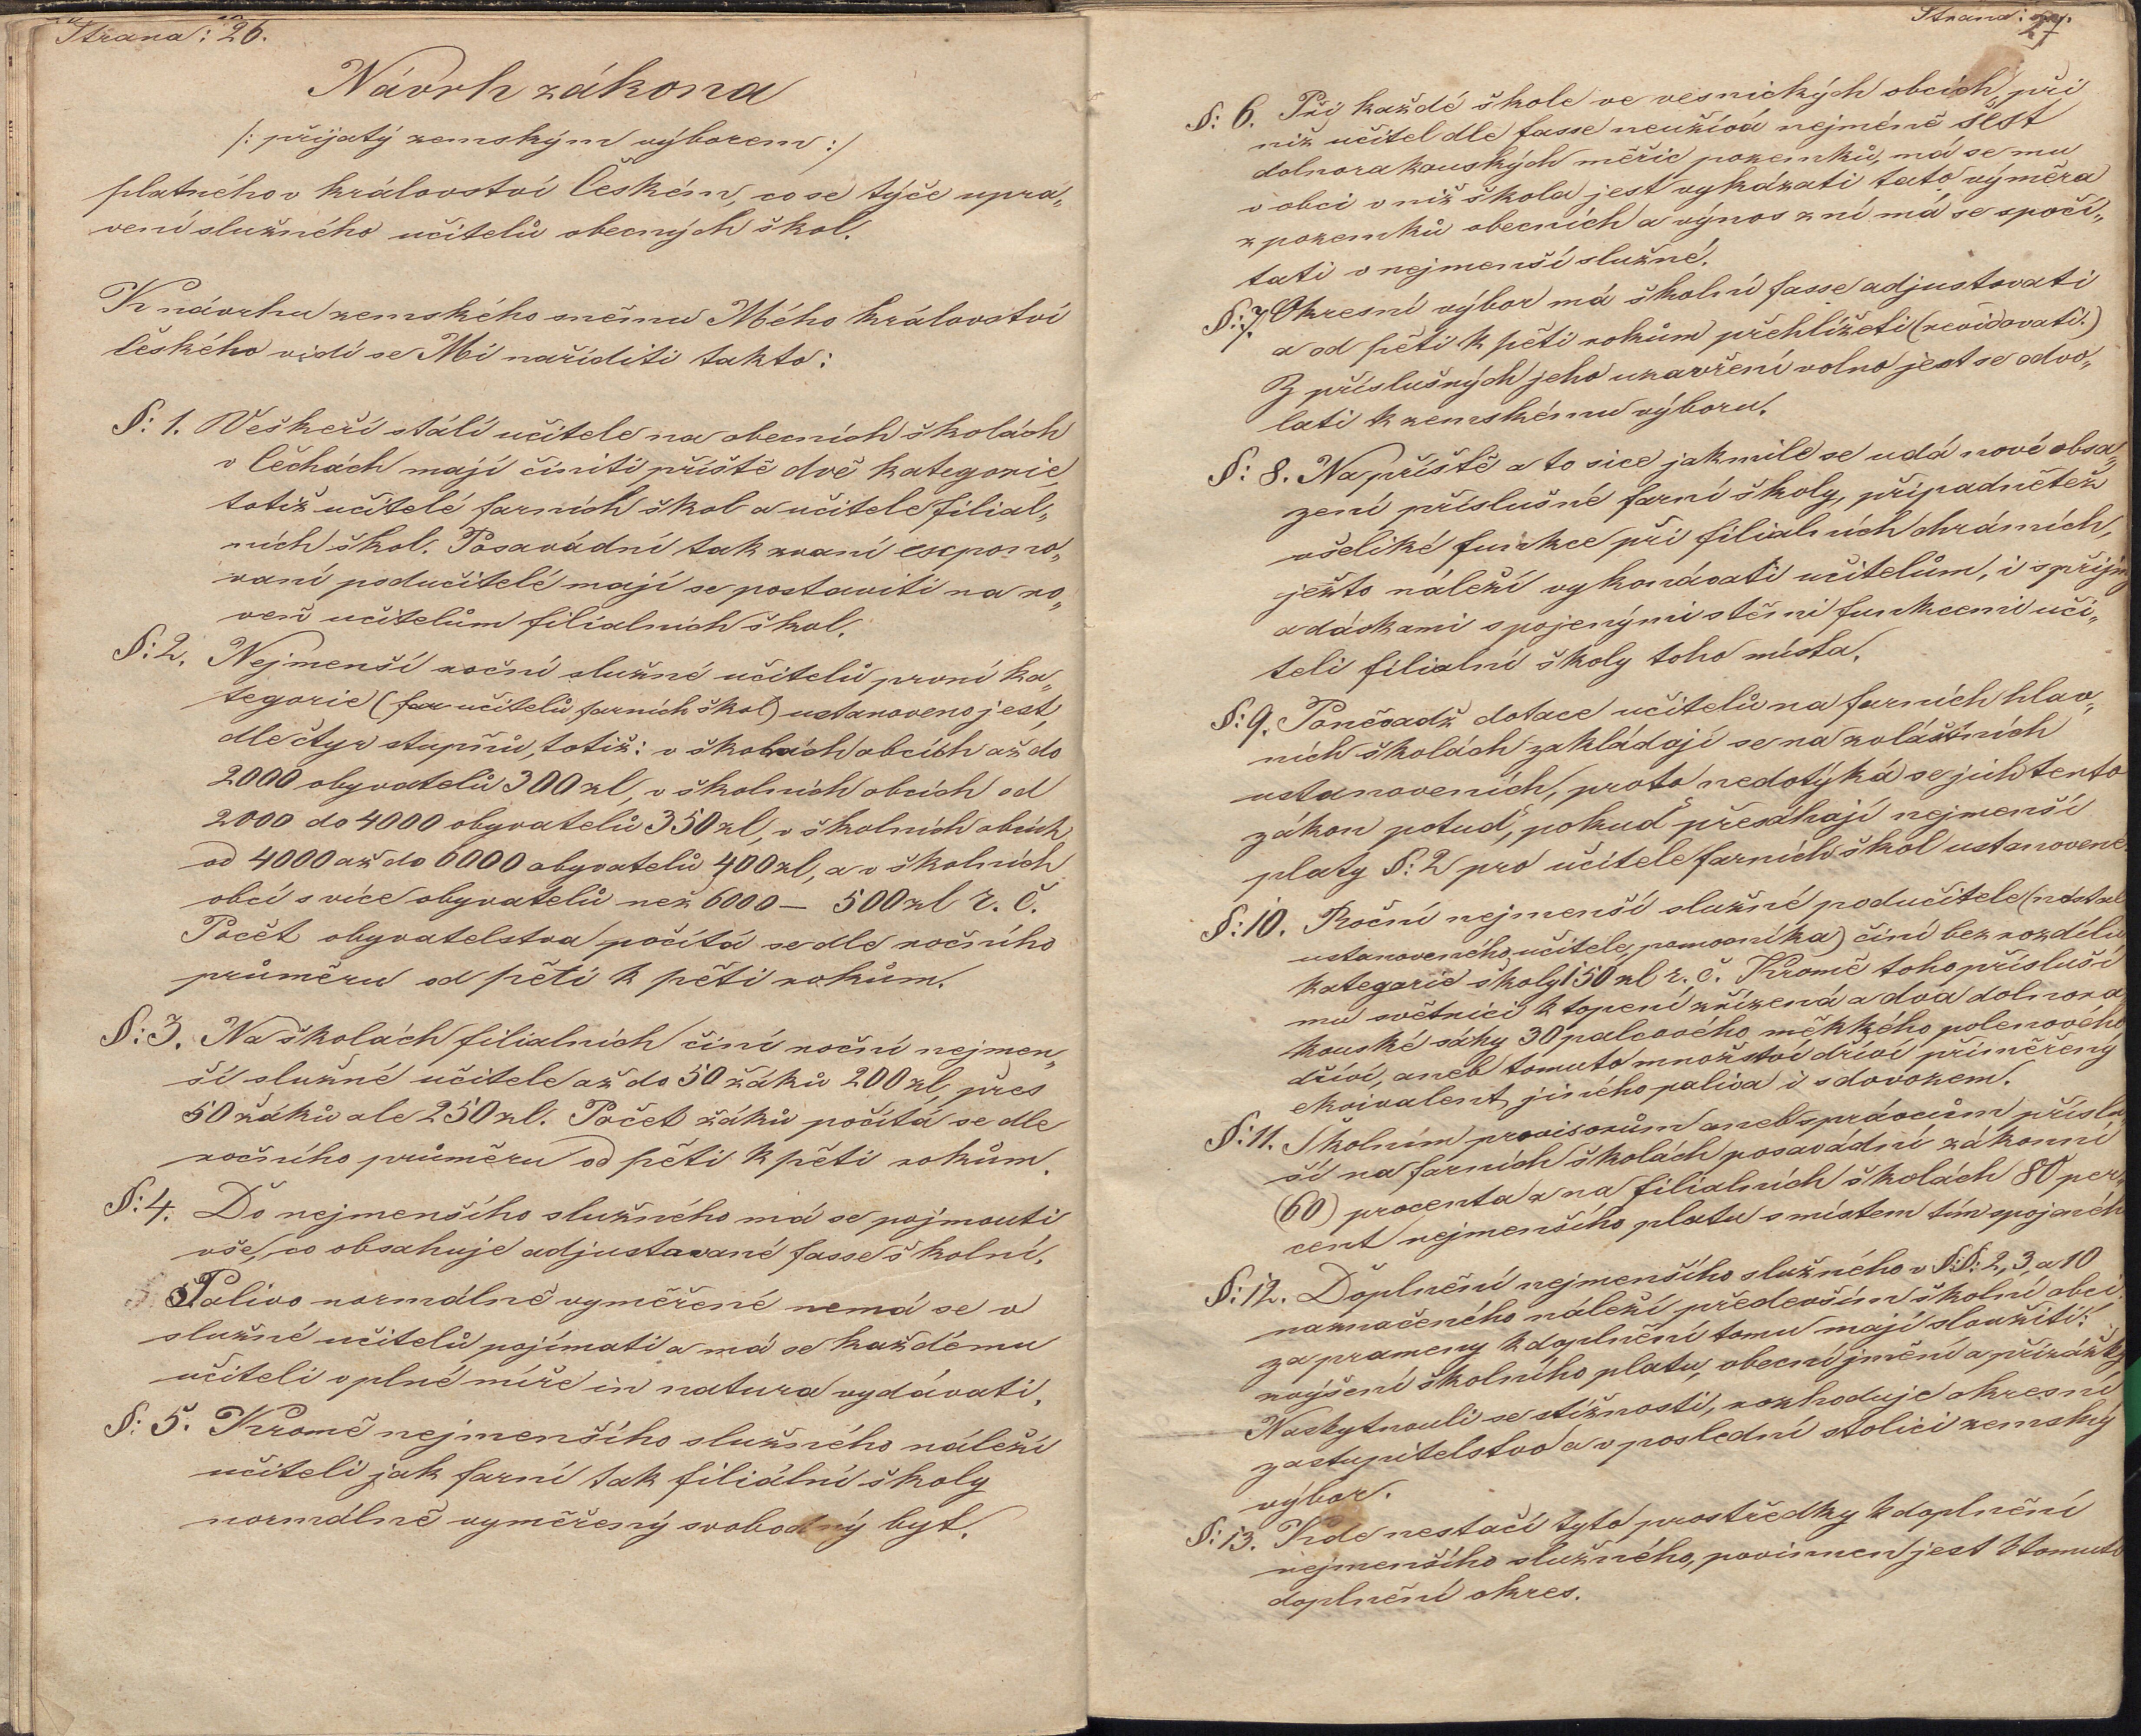 Strana: 26.
Návrh zákona
/: přijatý zemským výborem :/
platného v království Českém, co se týče upra„
vení služného učitelů obecných škol.
K návrhu zemského sněmu Mého království
českého vidí se Mi naříditi takto:
§: 1. Veškeří stálí učitele na obecních školách
v Čechách mají činiti příště dvě kategorie,
totiž učitelé farních škol a učitele filial„
ních škol. Posavádní tak zvaní expono„
vaní podučitelé mají se postaviti na ro„
veň učitelům filialních škol.
§: 2. Nejmenší roční služné učitelů první ka„
tegorie (far učitelů farních škol) ustanoveno jest,
dle čtyr stupňů, totiž: v školách obcích až do
2000 obyvatelů 300 zl, v školních obcích od
2000 do 4000 obyvatelů 350 zl, v školních obcích
od 4000 až do 6000 obyvatelů 400 zl, a v školních
obcí s více obyvatelů než 6000 — 500 zl r. č.
Počét obyvatelstva počítá se dle ročního
průměru od pěti k pěti rokům.
§: 3. Na školách filialních činí roční nejmen„
ší služné učitele až do 50 žáků 200 zl, přes
50 žáků ale 250 zl. Počet žáků počítá se dle
ročního průměru od pěti k pěti rokům.
§: 4. Do nejmenšího služného má se pojmouti
vše, co obsahuje adjustované fasse školní.
Palivo normálně vyměřené nemá se v
služné učitelů pojímati a má se každému
učiteli v plné míře in natura vydávati.
§: 5. Kromě nejmenšího služného náleží
učiteli jak farní tak filiální školy
normálně vyměřený svobodný byt.
Strana: 27.
§: 6. Při každé škole ve vesnických obcích, při
níž učitel dle fasse neužívá nejméně šest
dolnorakouských měřic pozemků, má se mu
v obci v níž škola jest vykázati tato výměra
z pozemků obecních a výnos z ní má se spočí„
tati v nejmenší služné.
§: 7. Okresní výbor má školní fasse adjustovati
a od pěti k pěti rokům přehlížeti (revidovati.)
Z příslušných jeho uzavření volno jest se odvo„
lati k zemskému výboru.
§: 8. Napříště a to sice jakmile se udá nové obsa„
zení příslušné farní školy, připadnětež
všeliké funkce při filialních chrámích,
ježto náleží vykonávati učitelům, i s příjmy
a dávkami spojenými s těmi funkcemi uči„
teli filialní školy toho místa.
§: 9. Poněvadž dotace učitelů na farních hlav„
ních školách zakládají se na zvláštních
ustanoveních, proto nedotýká se jich tento
zákon potud, pokud přesáhají nejmenší
platy §: 2 pro učitele farních škol ustanovené.
§: 10. Roční nejmenší služné podučitele (nestále
ustanoveného učitele, pomocníka) činí bez rozdílu
kategorie školy 150 zl r. č. Kromě toho přísluší
mu světnici k topení zřízená a dva dolnora„
kouské sáhy 30 palcového, měkkého polenového
dříví, aneb tomuto množství dříví přiměřený
ekvivalent jiného paliva i s dovozem.
§: 11. Školním provisorům aneb správcům příslu„
ší na farních školách posavádní zákonní
(60) procenta a na filialních školách 80 per„
cent nejmenšího platu s místem tím spojeného
§: 12. Doplnění nejmenšího služného v §:§: 2, 3, a 10
naznačeného náleží především školní obci.
za prameny k doplnění tomu mají sloužiti:
zvýšení školního platu, obecní jmění a přirážky
Naskytnouli se stížnosti, rozhoduje okresní
zastupitelstvo a v poslední stolici zemský
výbor.
§: 13. Kde nestačí tyto prostředky k doplnění
nejmenšího služného, povinnen jest k tomuto
doplnění okres.